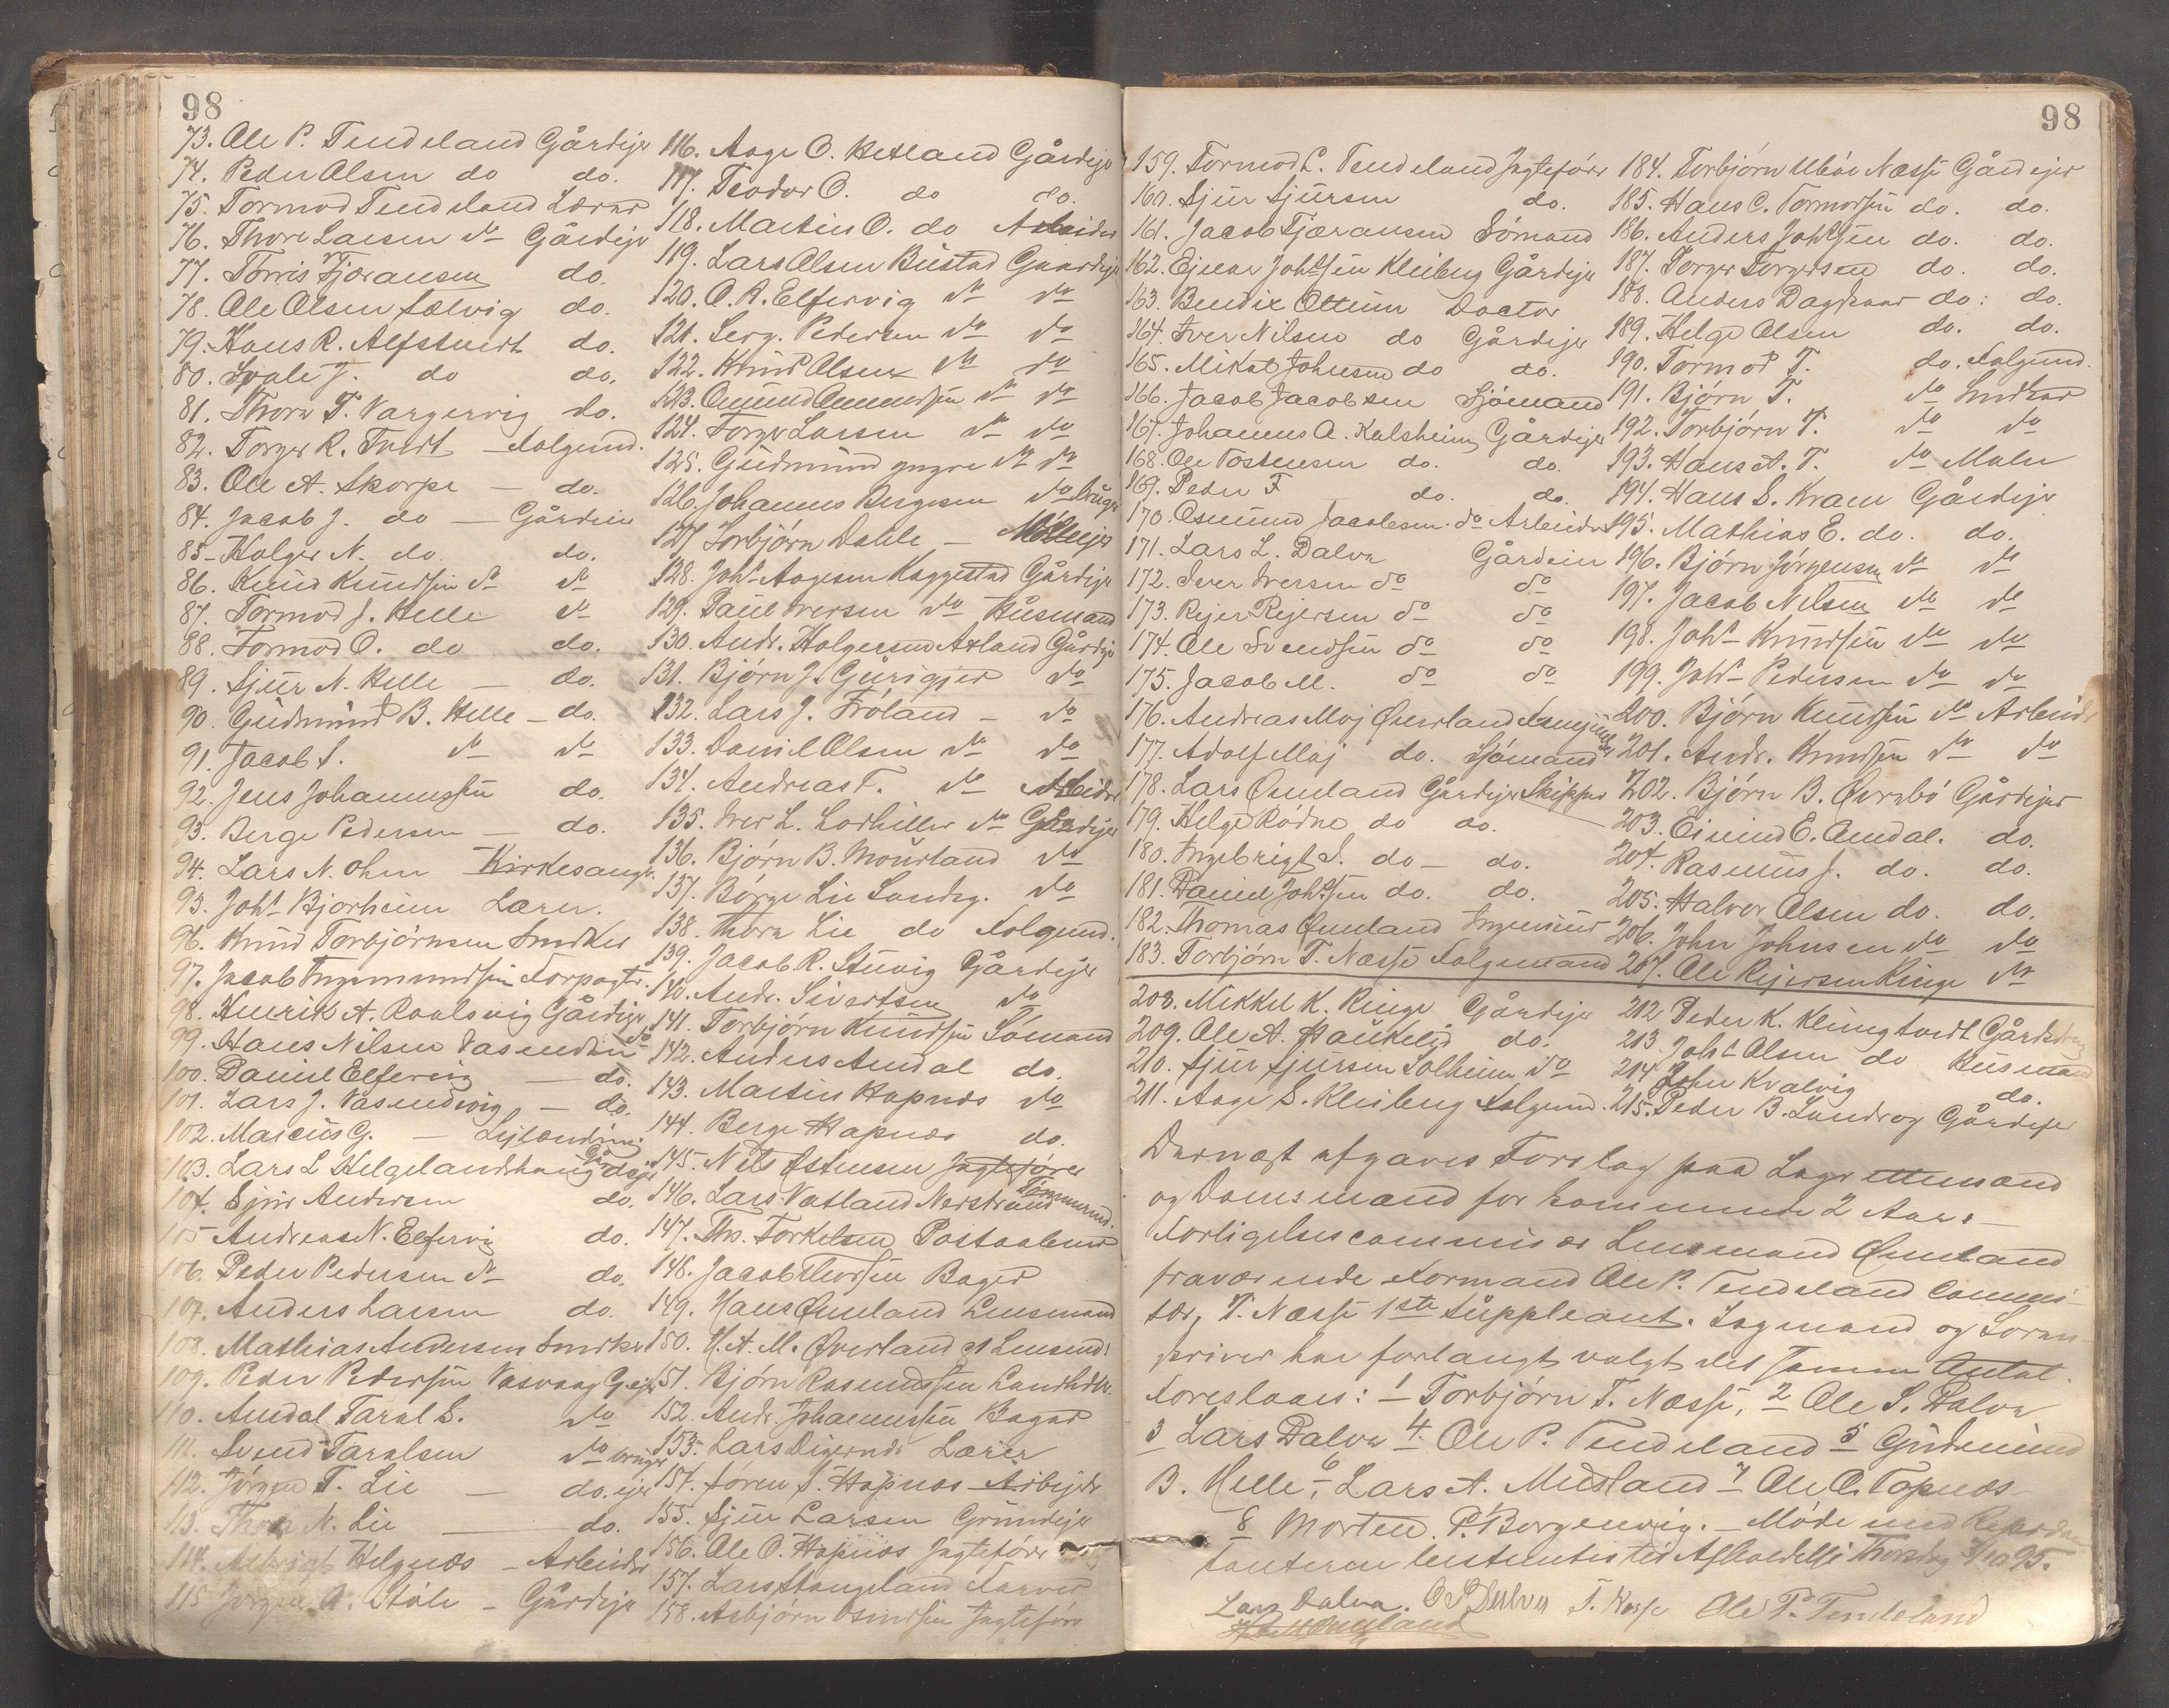 98
73. Ole P. Tendeland Gårdejer
74. Peder Olsen do do.
75. Tormod Tendeland Lærer
76. Thore Larsen do Gårdejer
77. Tørris Tjæransen do.
78. Ole Olsen Sælvig do.
79. Hans R. Alfstvert do.
80. Svale J. do do.
81. Thore T. Vargervig do.
82. Torger R. Tvedt – Folgemd.
83. Ole A. Skorpe – do.
84. Jacob J. do – Gårdeier
85. Holger N. do. do.
86. Knud Knudsen do do
87. Tormod J. Helle do
88. Tormod O. do do.
89. Sjur N. Helle – do.
90. Gudmund B. Helle – do.
91. Jacob S. do do
92. Jens Johannessen do.
93. Berge Pedersen – do.
94. Lars N. Ohm Kirkesanger
95. Johs Bjorheim Lærer.
96. Knud Torbjørnsen Snedker
97. Jacob Ingemundsen Forpagter.
98. Henrik A. Raalsvig Gårdejer
99. Hans Nilsen Vasenden do
100. Daniel Elfervig – do.
101. Lars J. Vasendvig – do.
102. Marcus G. – Lejlænding
103. Lars L Helgelandshaug Gårdejer
104. Sjur Andersen do.
105 Andreas N. Elfervig do.
106. Peder Pedersen do do.
107. Anders Larsen do.
108. Mathias Andersen Snedker
109. Peder Pedersen Vasvaag G.ejer
110. Amdal Taral S. do
111. Svend Taralsen do bruger
112. Jørgen T. Lie – do. ejer
113. Thore N. Lie – do.
114. Helgenæs – Arbeider
115 Jørgen A. Støle – Gårdejer
116. Aage O. Hetland Gårdejer
117. Teodor O. do do.
118. Martin O. do Arbeider
119. Lars Olsen Bustad Gaardejer
120. O. R. Elfervig do do
121. Serg. Pedersen do do
122. Knud Olsen do do
123. Omund Omundsen do do
124. Torger Larsen do do
125. Gudmund yngre do do
126. Johannes Bergesen do bruger
127 Torbjørn Dahle – Mølleejer
128. Johs Aagesen Haggestad Gårdejer
129. Paul Iversen do Husmand
130. Andr. Holgersen Axland Gårdejer
131. Bjørn J. Gurigjer do
132. Lars J. Frøland – do
133. Daniel Olsen do do
134. Andreas T. do Arbeider
135. Iver L. Lorhiller do Gårdejer
136. Bjørn B. Mourland do
137. Børge Lie Sandeg. do
138. Thore Lie do Folgemd.
139. Jacob R. Stuvig Gårdejer
140. Andr. Sivertsen do
141. Torbjørn Knudsen Sømand
142. Anders Amdal do.
143. Martin Hapnes do
144. Berge Hapnes do.
145. Nils Østensen Jagtefører
146. Lars Vatland Nerstrand Tømmermd.
147. Ths. Torkelsen Postaabner
148. Jacob Thorsen Bager
149. Hans Qvaland Lensmand
150. H. A. M. Øverland Lensmd.
151. Bjørn Rasmussen Landhdlr.
152. Andr. Johannessen Bager
153. Lars Digernes Lærer
154. Søren S. Hapnes Arbejder
155. Sjur Larsen Grundejer
156. Ole O. Hapnes Jagtefører
157. Lars Stangeland Farver
158. Asbjørn Osmundsen Jagtefører
98
159. Tormod L. Tendeland Jagtefører
160. Sjur Sjursen do.
161. Jacob Tjæransen Sømand
162. Ejnar Johssen Kleiberg Gårdejer
163. Bendix Ottum Doctor
164. Iver Nilsen do Gårdejer
165. Mikal Johnsen do do.
166. Jacob Jacobsen Sjømand
167. Johannes A. Kalsheim Gårdejer
168. Ole Tostensen do. do.
169. Peder F do. do.
170. Osmund Jacobsen. do Arbeider
171. Lars L. Dalva Gårdeier
172. Iver Iversen do do
173. Rejer Rejersen do do
174. Ole Svendsen do do
175. Jacob M. do do
176. Andreas Maj Øverland
177. Adolf Maj do. Sjømand
178. Lars Qvaland Gårdejer Skipper
179. Helge Rødne do do.
180. Ingebrigt S. do – do.
181. Daniel Johssen do. do.
182. Thomas Qvaland Ingeniør
183. Torbjørn T. Næsse Folgemand
184. Torbjørn Næsse Gårdejer
185. Hans C. Tormodsen do. do.
186. Anders Johssen do. do.
187. Torger Torgersen do. do.
188. Anders Dagskaar do: do.
189. Helge Olsen do. do.
190. Tormod T. do. Folgemd.
191. Bjørn T. do Snedker
192. Torbjørn T. do do
193. Hans A. T. do Maler
194. Hans S. Kram Gårdejer
195. Mathias E. do. do.
196. Bjørn Jørgensen do do
197. Jacob Nilsen do do
198. Johs Knudsen do do
199. Johs Pedersen do do
200. Bjørn Knudsen do Arbeider
201. Andr. Knudsen do do
202. Bjørn B. Øvrebø Gårdejer
203. Eivind E. Amdal. do.
204. Rasmus J. do. do.
205. Halvor Olsen do. do.
206. John Johnsen do do
207. Ole Rejersen Ringe do
208. Mikkel K. Ringe Gårdejer
209. Ole A. Haukelid do.
210. Sjur Sjursen Solheim do
211. Aage S. Kleiberg Folgemd.
212 Peder K. Klungtvedt Gårdsdreng
213. Johs Olsen do Husmand
214 John Kvalvig do.
215. Peder B. Sandvog Gårdejer
Dernæst afgaves Forslag paa Lagrettemænd
og Domsmænd for kommende 2 Aar. –
Forligelsescommissær Lensmand Qvaland
fraværende Formand Ole P. Tendeland Commi-
sær, T. Næsse 1ste Suppleant. Lagmand og Soren-
skriver har forlangt valgt det samme Antal.
Foreslaaes: 1 Torbjørn T. Næsse, 2 Ole S. Dalva
3 Lars Dalva 4. Ole P. Tendeland 5 Gudmund
B. Helle, 6 Lars A. Midtland 7 Ole O. Tapnes –
8 Morten. P. Borgenvig. – Møde med Repræsen
tanterne bestemtes til Afholdelse Thorsdag 3/10 95.
Lars Dalva. O S Dalva T. Næsse Ole P. Tendeland